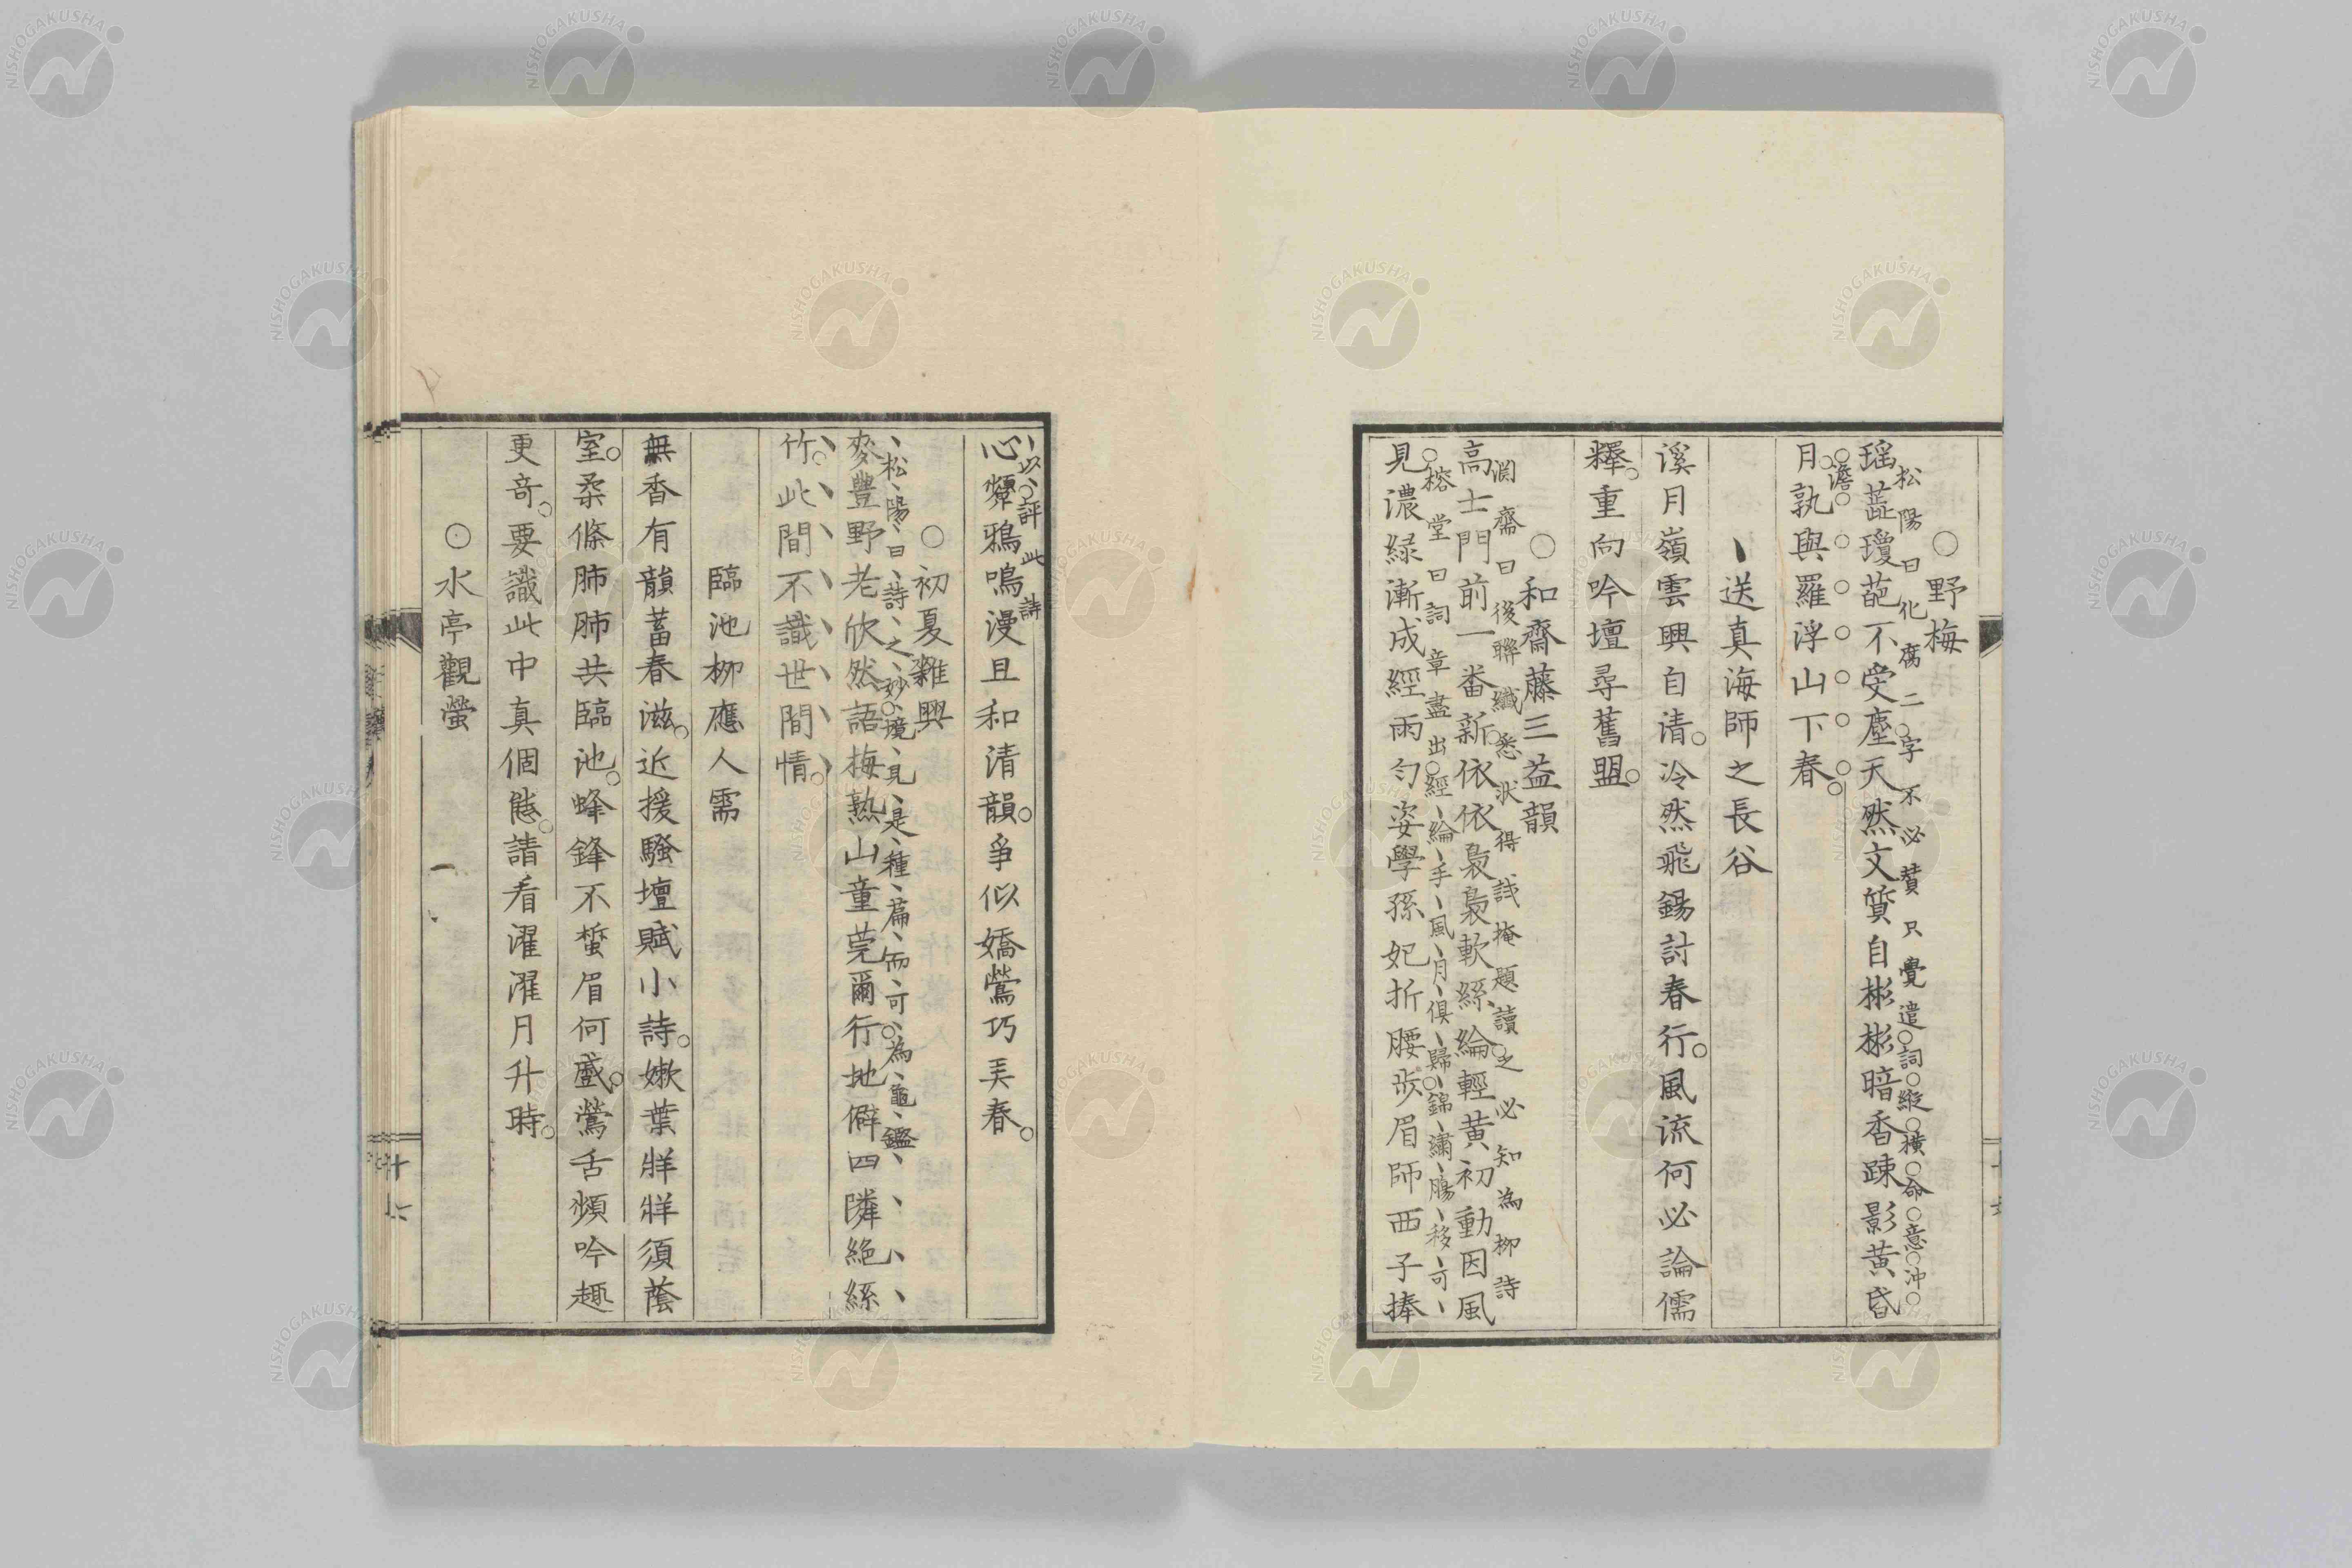 ○野梅
松陽曰化腐二字不必贊只覺遣詞縱橫命意沖
瑤蕋瓊葩不受塵天然文質自彬彬暗香踈影黄昏
澹
月孰與羅浮山下春
送真海師之長谷
溪月嶺雲興自清冷然飛錫討春行風流何必論儒
釋重向吟壇尋舊盟
○和齋藤三益韻
淵齋曰後聯纖悉狀得試掩題讀之必知為柳詩
高士門前一番新依依裊裊軟絲綸輕黄初動因風
榕堂曰詞章盡出經綸手風月俱歸錦繡腸移可
見濃緑漸成經雨勻姿學孫妃折腰步眉師西子捧
以評此詩
心顰鴉鳴漫且和清韻爭似嬌鶯巧弄春
○初夏雜興
松陽曰詩之妙境見是種篇而可為龜鑑
麥豐野老欣然語梅熟山童莞爾行地僻四隣絶絲
竹此間不識世間情
臨池柳應人需
無香有韻蓄春滋近援騷壇賦小詩嫩葉牂牂須蔭
室柔條肺肺共臨池蜂鋒不螫眉何蹙鶯舌頻吟趣
更奇要識此中真個態請看濯濯月升時
○水亭觀螢
十七
NISHOGAKUSHA